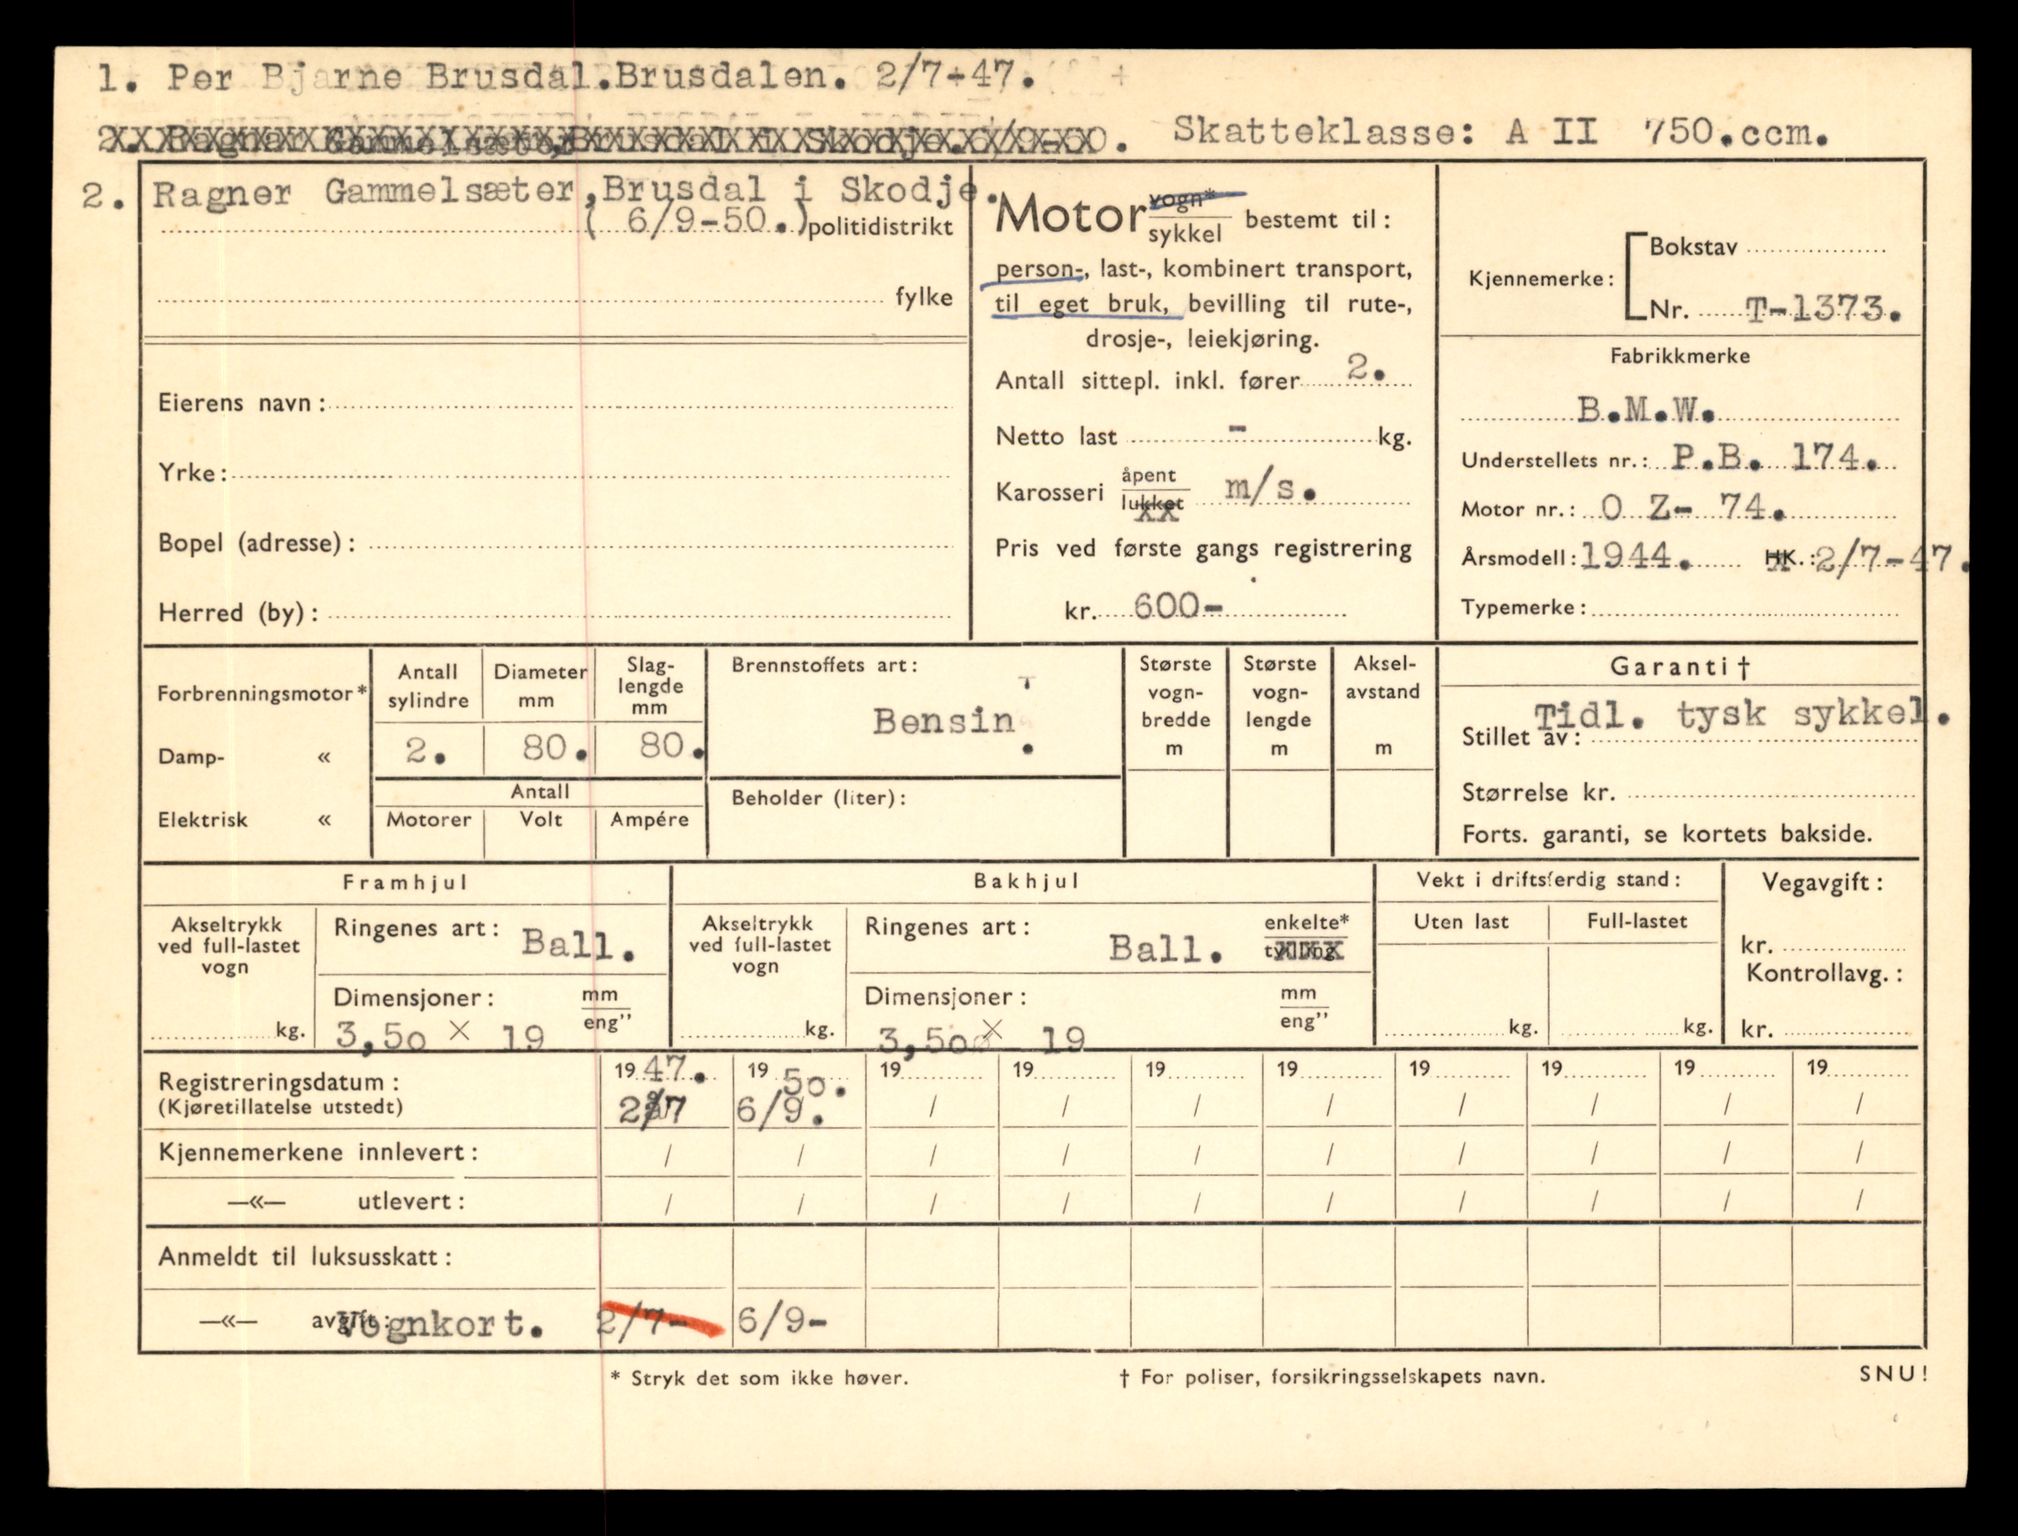 1. Per Bjarne Brusdal.Brusdalen. 2/7-47.
2. Ragnar Gammelsæter,Brusdal i Skodje. 6/9-50. Skatteklasse: A II 750.ccm.
2. Ragner Gammelsæter,Brusdal i Skodje.
( 6/9-50.) politidistrikt
fylke
Eierens navn:
Yrke:
Bopel (adresse):
Herred (by):
Motor vogn* sykkel bestemt til:
person-, last-, kombinert transport,
til eget bruk, bevilling til rute-,
drosje-, leiekjøring.
Antall sittepl. inkl. fører 2.
Netto last - kg.
Karosseri åpent lukket m/s.
Pris ved første gangs registrering
kr. 600-
Kjennemerke: Bokstav
Nr. T-1373.
Fabrikkmerke
B.M.W.
Understellets nr.: P.B. 174.
Motor nr.: O Z- 74.
Årsmodell: 1944. HK.: 2/7-47.
Typemerke:
Forbrenningsmotor*
Damp- «
Elektrisk «
Antall sylindre
2.
Diameter mm
80.
Slag-lengde mm
80.
Antall
Motorer Volt Ampére
Brennstoffets art:
Bensin.
Beholder (liter):
Største vogn-bredde m
Største vogn-lengde m
Aksel-avstand m
Garanti †
Tidl. tysk sykkel.
Stillet av:
Størrelse kr.
Forts. garanti, se kortets bakside.
Framhjul
Akseltrykk ved full-lastet vogn
kg.
Ringenes art: Ball.
Dimensjoner: mm eng"
3,50 × 19
Bakhjul
Akseltrykk ved full-lastet vogn
kg.
Ringenes art: Ball. enkelte* tvilling
Dimensjoner: mm eng"
3,50 × 19
Vekt i driftsferdig stand:
Uten last Full-lastet
kg. kg.
Vegavgift:
kr.
Kontrollavg.:
kr.
Registreringsdatum: 19 47. 19 50. 19 19 19 19 19 19 19 19
(Kjøretillatelse utstedt) 2/7 6/9. / / / / / / / /
Kjennemerkene innlevert: / / / / / / / / / /
—«— utlevert: / / / / / / / / / /
Anmeldt til luksusskatt:
—«— avgift: Vognkort. 2/7- 6/9-
* Stryk det som ikke høver. † For poliser, forsikringsselskapets navn. SNU!